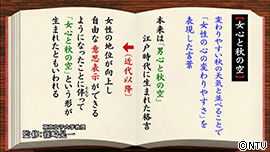 【女心と秋の空】
変わりやすい秋の天気と並べることで
「女性の心の変わりやすさ」を
表現した言葉
本来は「男心と秋の空」
江戸時代に生まれた格言
（近代以降）
女性の地位が向上し
自由な意思表示ができる
ようになったことに伴って
「女心と秋の空」という形が
生まれたともいわれる
©NTV